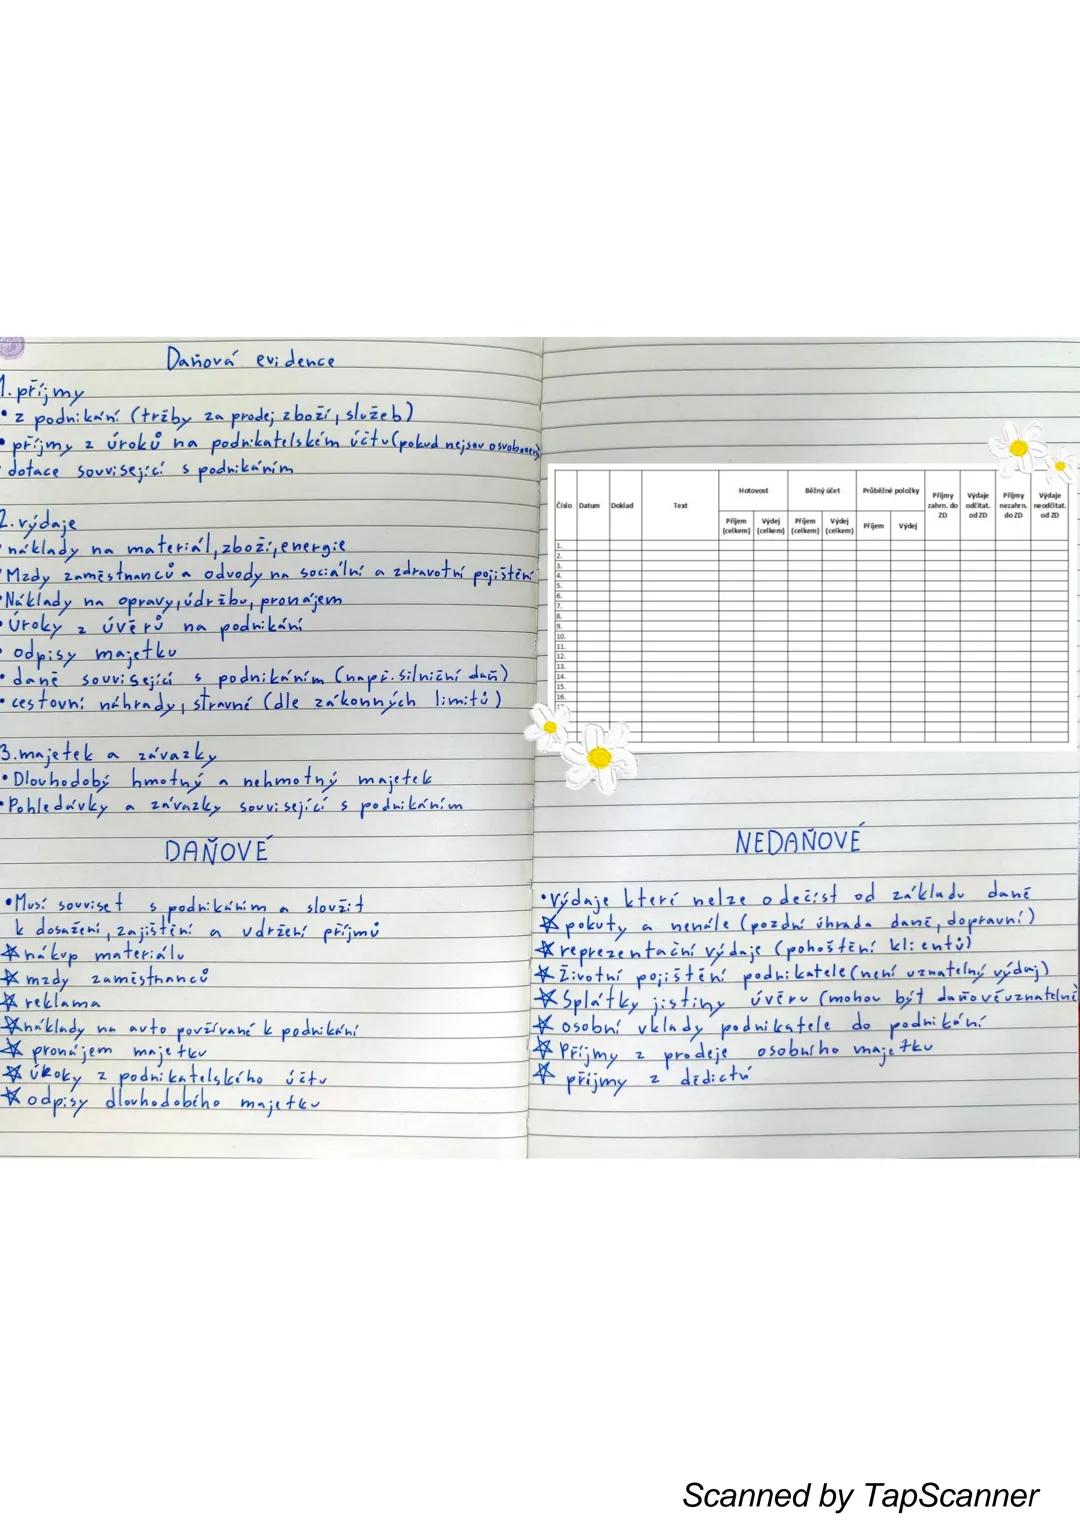 Daňová evidence
1. příjmy
• z podnikání (tržby za prodej zboží, služeb)
• příjmy z úroků na podnikatelském účtu (pokud nejsou osvobozeny)
• dotace související s podnikáním
2. výdaje
• náklady na materiál, zboží, energie
• Mzdy zaměstnanců a odvody na sociální a zdravotní pojištění
• Náklady na opravy, údržbu, pronájem
• Úroky z úvěrů na podnikání
• odpisy majetku
• daně související s podnikáním (např. silniční daň)
• cestovní náhrady, stravné (dle zákonných limitů)
3. majetek a závazky
• Dlouhodobý hmotný a nehmotný majetek
• Pohledávky a závazky související s podnikáním
DAŇOVÉ
• Musí souviset s podnikáním a sloužit
k dosažení, zajištění a udržení příjmů
☆ nákup materiálu
☆ mzdy zaměstnanců
☆ reklama
☆ náklady na auto používané k podnikání
☆ pronájem majetku
☆ úroky z podnikatelského účtu
☆ odpisy dlouhodobého majetku
Hotovost Běžný účet Průběžné položky
Číslo Datum Doklad Text Příjem (celkem) Výdej (celkem) Příjem (celkem) Výdej (celkem) Příjem Výdej Příjmy zahrn. do ZD Výdaje odčítat. od ZD Příjmy nezahrn. do ZD Výdaje neodčítat. od ZD
1.
2.
3.
4.
5.
6.
7.
8.
9.
10.
11.
12.
13.
14.
15.
16.
17.
NEDAŇOVÉ
• Výdaje které nelze odečíst od základu daně
☆ pokuty a nenále (pozdní úhrada daně, dopravní)
☆ reprezentační výdaje (pohoštění klientů)
☆ Životní pojištění podnikatele (není uznatelný výdaj)
☆ Splátky jistiny úvěru (mohou být daňově uznatelné
☆ osobní vklady podnikatele do podnikání
☆ Příjmy z prodeje osobního majetku
☆ příjmy z dědictví
Scanned by TapScanner